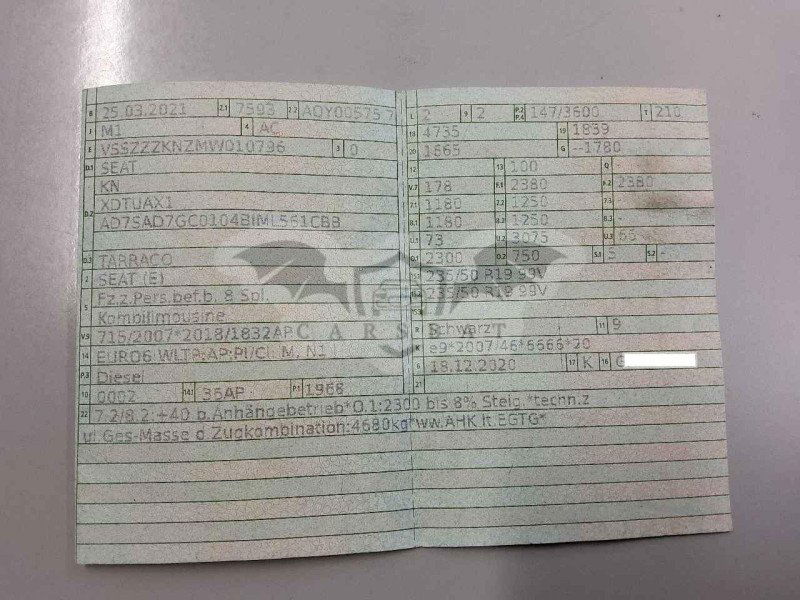 B 25.03.2021 2.1 7593 2.2 AQY00575 7
J M1 4 AC
E VSSZZZKNZMW010796 3 0
D.1 SEAT
D.2 KN
XDTUAX1
AD7SAD7GC0104BIML561CBB
D.3 TARRACO
2 SEAT (E)
5 Fz.z.Pers.bef.b. 8 Spl.
Kombilimousine
V.9 715/2007*2018/1832AP
14 EURO6 WLTP;AP;PI/CI; M, N1
P.3 Diesel
10 0002 14.1 36AP P.1 1968
22 7.2/8.2:+40 b.Anhängebetrieb*O.1:2300 bis 8% Steig.*techn.z
ul Ges-Masse d.Zugkombination:4680kg*ww.AHK lt.EGTG*
L 2 9 2 P.2 P.4 147/3600 T 210
18 4735 19 1839
20 1665 G --1780
12 - 13 100 Q -
V.7 178 F.1 2380 F.2 2380
7.1 1180 7.2 1250 7.3 -
8.1 1180 8.2 1250 8.3 -
U.1 73 U.2 3075 U.3 66
O.1 2300 O.2 750 S.1 5 S.2 -
15.1 235/50 R19 99V
15.2 235/50 R19 99V
15.3 -
R Schwarz 11 9
K e9*2007/46*6666*20
6 18.12.2020 17 K 16 G
21
CARS T